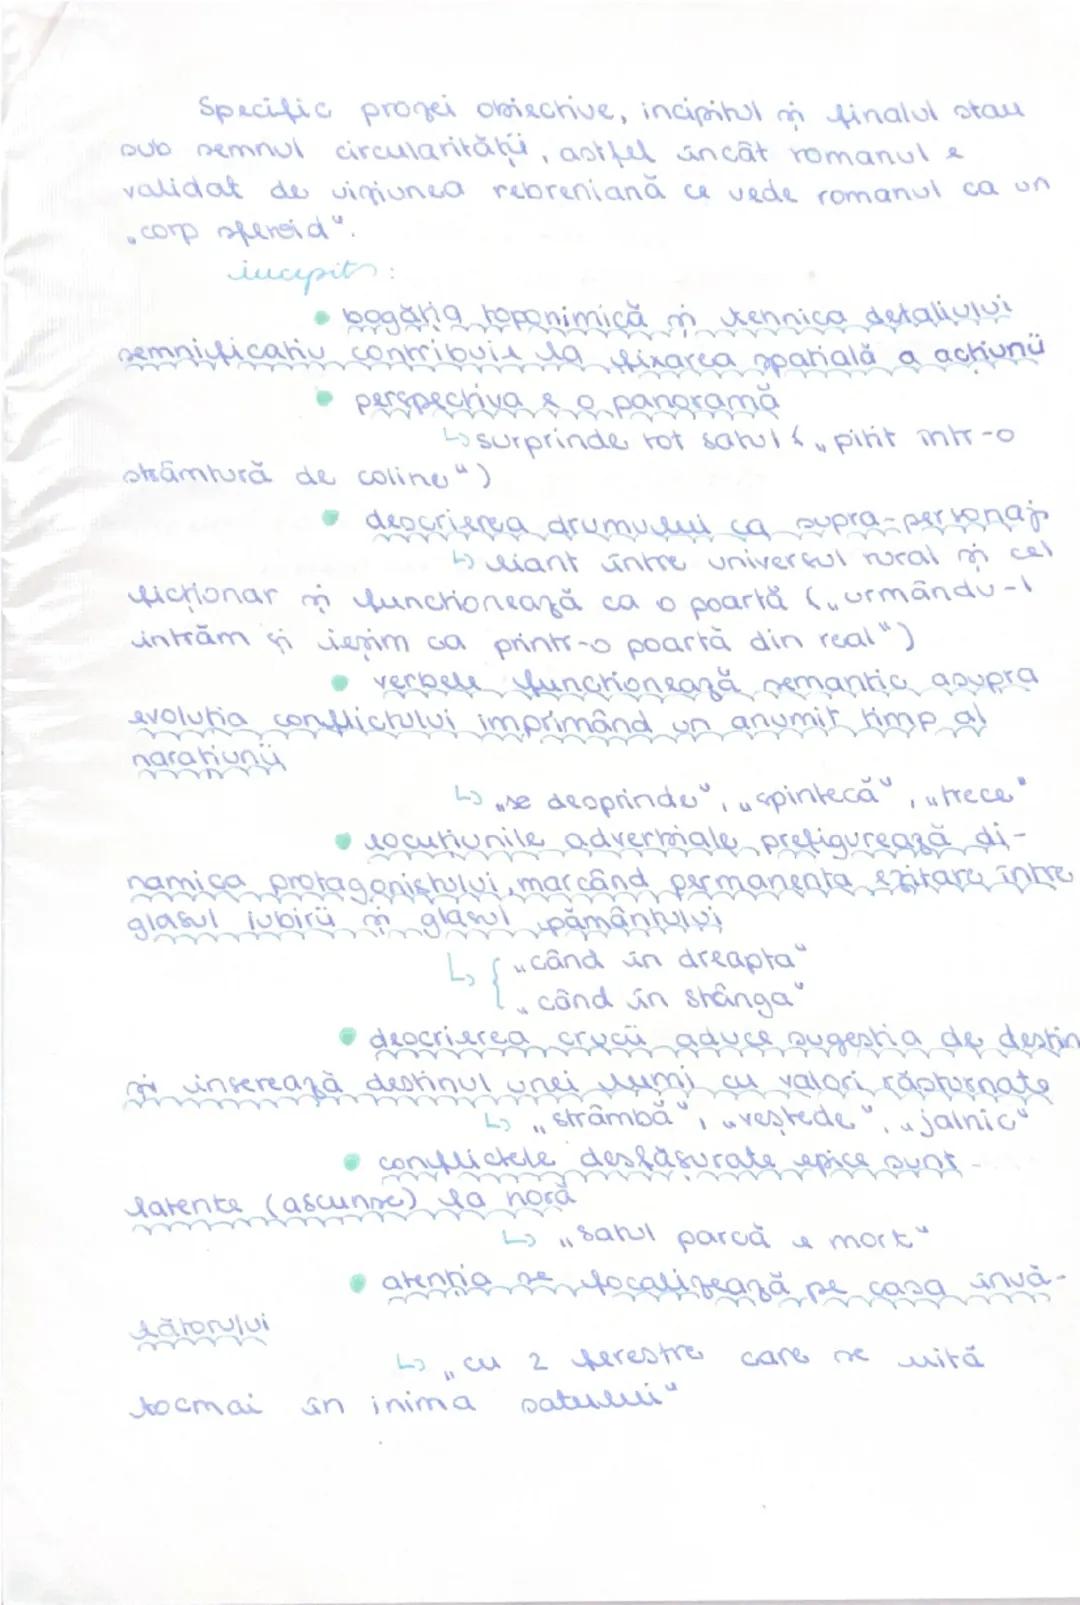 Specific prozei obiective, incipitul și finalul stau
sub semnul circularității, astfel încât romanul e
validat de viziunea rebreniană ce vede romanul ca un
„corp sferoid".
incepit:
• bogăția toponimică și tehnica detaliului
semnificativ contribuie la fixarea spațială a acțiunii
• perspectiva e o panoramă
↳ surprinde tot satul ( „pitit într-o
strâmtură de coline")
• descrierea drumului ca supra-personaj
↳ liant între universul rural și cel
ficționar și funcționează ca o poartă („urmându-l
intrăm și ieșim ca printr-o poartă din real")
• verbele funcționează semantic asupra
evoluția conflictului imprimând un anumit timp al
narațiunii
↳ „se desprinde", „spintecă", „trece"
• locuțiunile adverbiale prefigurează di-
namica protagonistului, marcând permanenta ezitare între
glasul iubirii și glasul pământului
↳ { „când în dreapta"
„când în stânga"
• descrierea crucii aduce sugestia de destin
și inserează destinul unei lumi cu valori răsturnate
↳ „strâmbă", „veștede", „jalnic"
• conflictele desfășurate epice sunt
latente (ascunse) la horă
↳ „satul parcă e mort"
• atenția se focalizează pe casa învă-
țătorului
↳ „cu 2 ferestre care se uită
tocmai în inima satului"